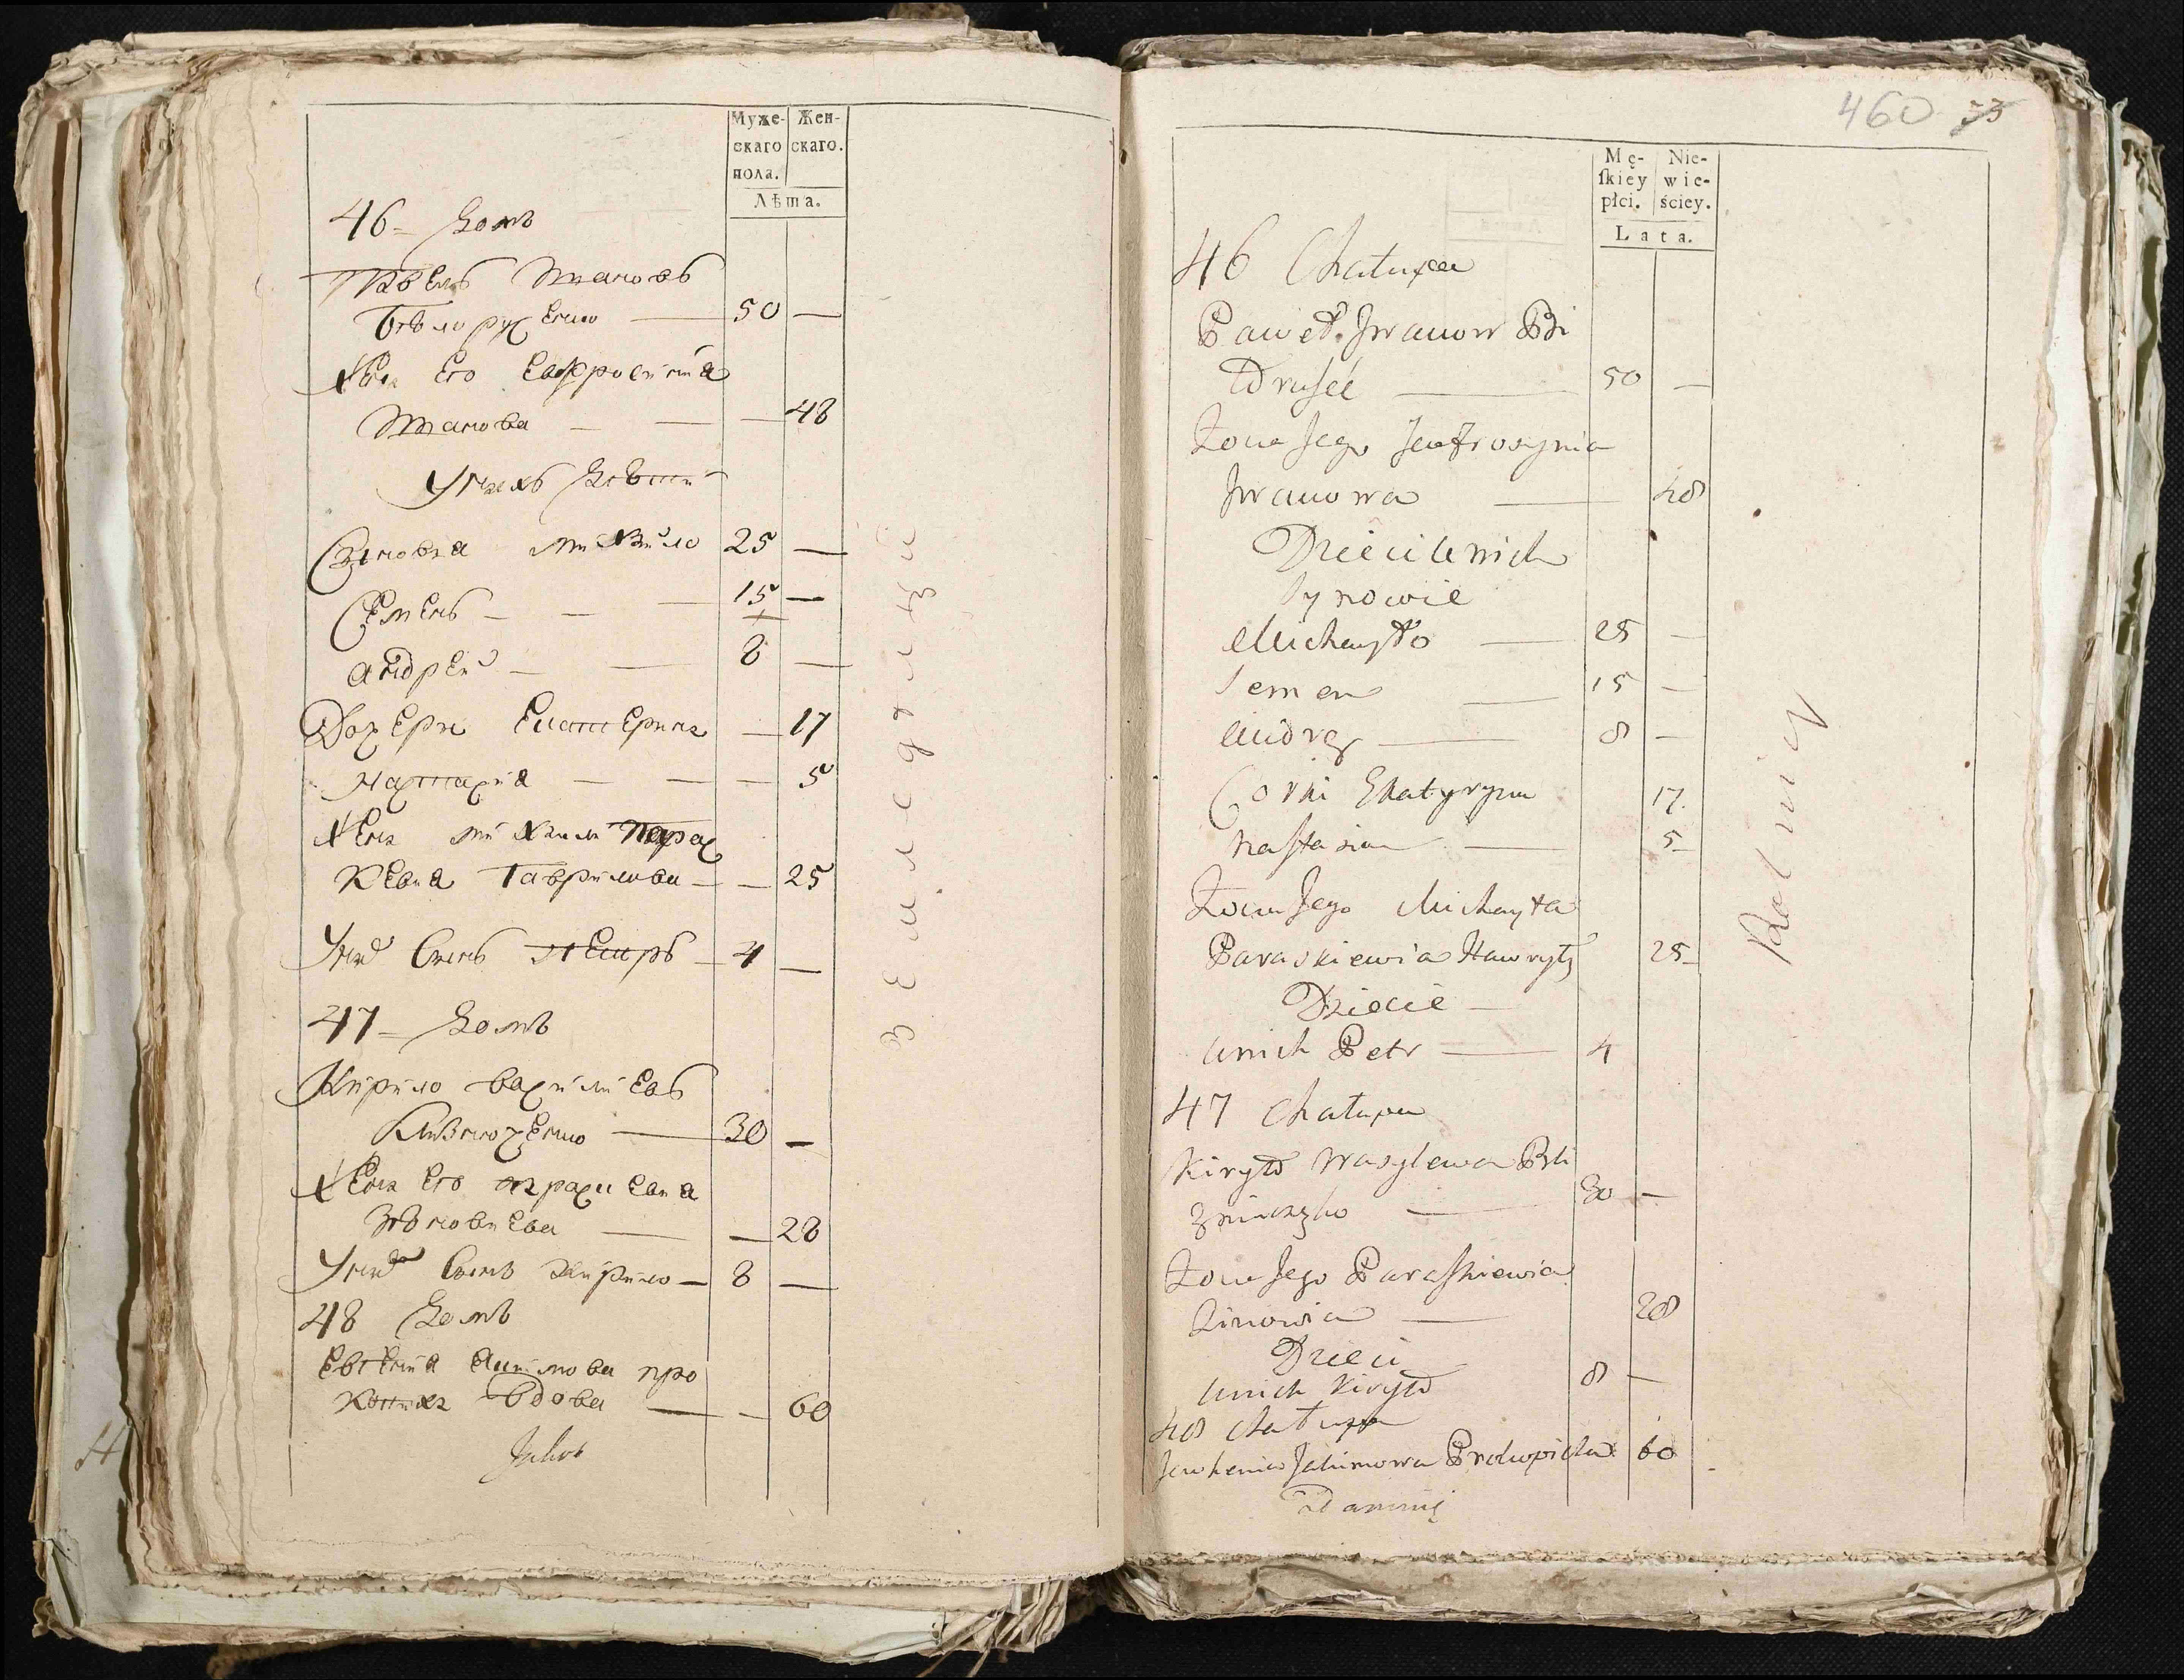 Муже-
скаго
пола.
Жен-
скаго.
Лѣта.
46 - Домъ
Павелъ Ивановъ
50 —
Жена Его Евфросинїа
Иванова — — — 48
У нихъ Дѣти
Сыновья Михайло 25 —
Семенъ — — 15 —
Андрей — — 8 —
Дочери Екатерина — 17
Настасїа — — — 5
Жена Михайли Парас
кевїа Гаврилова — — 25
У них Сынъ Петръ — 4 —
47 - Домъ
Кирило Васильевъ
30 —
Жена Его Параскевїа
Зѣновиева — — 28
У них Сынъ Кирило — 8 —
48 Домъ
Евгенїа Акимова про
вдова — — 60
Jakob
Земледѣлецъ
460 33
Mę-
ſkiey
płci.
Nie-
wie-
ściey.
Lata.
46 Chałupa
Paweł Jwanow Bi
50 —
Zona Jego Jeufrosynia
Jwanowa — 48
Dzieci u nich
Synowie
Michayło — 25 —
Semen — 15 —
Andrey — 8 —
Corki Ekatyryna 17.
Naſtasia — 5
Zona Jego Michayła
Paraskiewia Hawryły 25
Dziecie —
U nich Petr — 4
47 Chałupa
Kiryło Wasylewa
30 —
Zona Jego Paraſkiewia
Zinowia — 28
Dzieci
U nich Kiryło 8 —
48 Chałupa
Jewhenia Jakimowa 60
Rolnicy